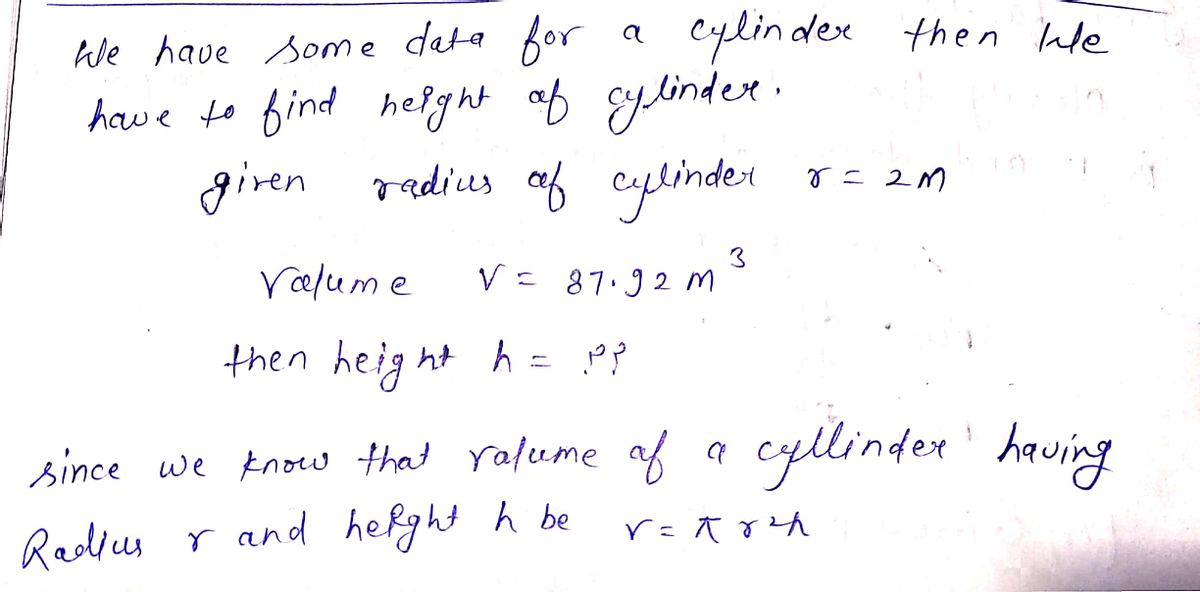 We have some data for a cylinder then We
have to find height of cylinder.
given radius of cylinder r = 2m
Volume V = 87.92 m³
then height h = ??
since we know that volume of a cyllinder having
Radius r and height h be v = π r²h